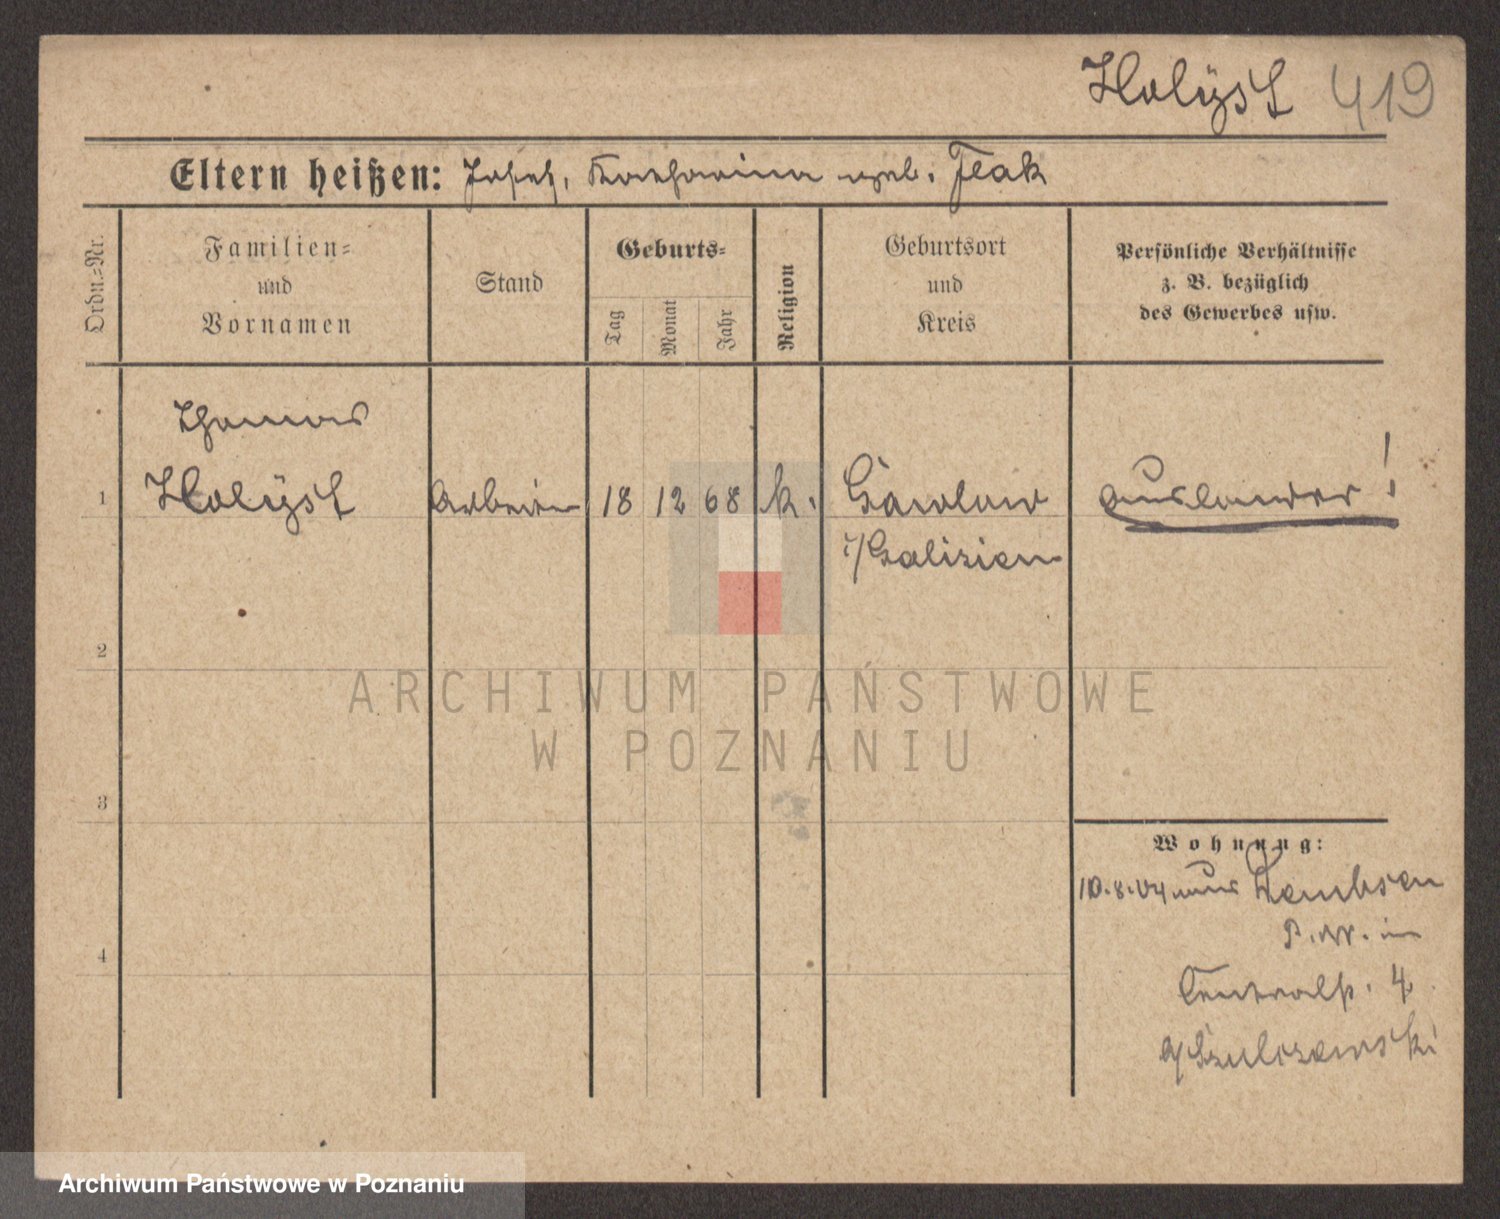 Holÿst 419
Eltern heißen: Josef, Katharina geb. Flak
Ordn.=Nr.
Familien=
und
Vornamen
Stand
Geburts=
Tag
Monat
Jahr
Religion
Geburtsort
und
Kreis
Persönliche Verhältnisse
z. B. bezüglich
des Gewerbes usw.
Thomas
1 Holÿst Arbeiter 18 12 68 k. Gawlow Auslander!
i/Galizien
2
3
4
Wohnung:
10.8.04 aus Zembsen
P. W. in
Centralp. 4
b/Szulczewski
ARCHIWUM PAŃSTWOWE
W POZNANIU
Archiwum Państwowe w Poznaniu